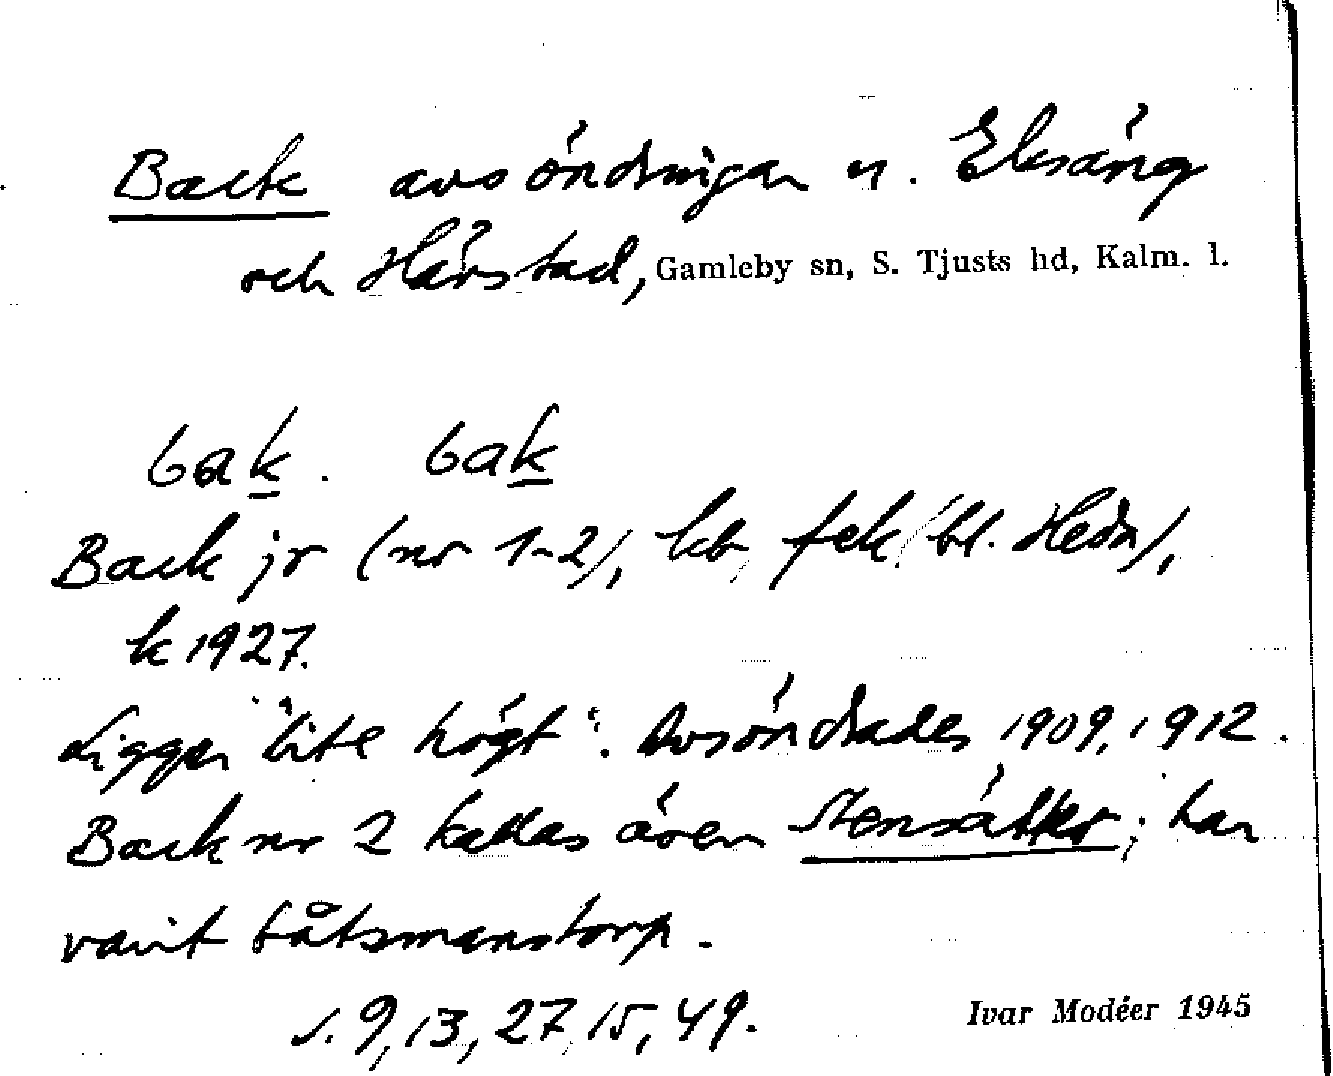 Back avsöndringar u. Eksäng
och Härstad, Gamleby sn, S. Tjusts hd, Kalm. l.
bak. bak
Back jr (nr 1-2), kb, fek (bl. Hedn),
k 1927.
Ligger "lite högt". Avsöndrades 1909, 1912.
Back nr 2 kallas även Stensätter; har
varit båtsmanstorp.
s. 9, 13, 27, 15, 49.
Ivar Modéer 1945